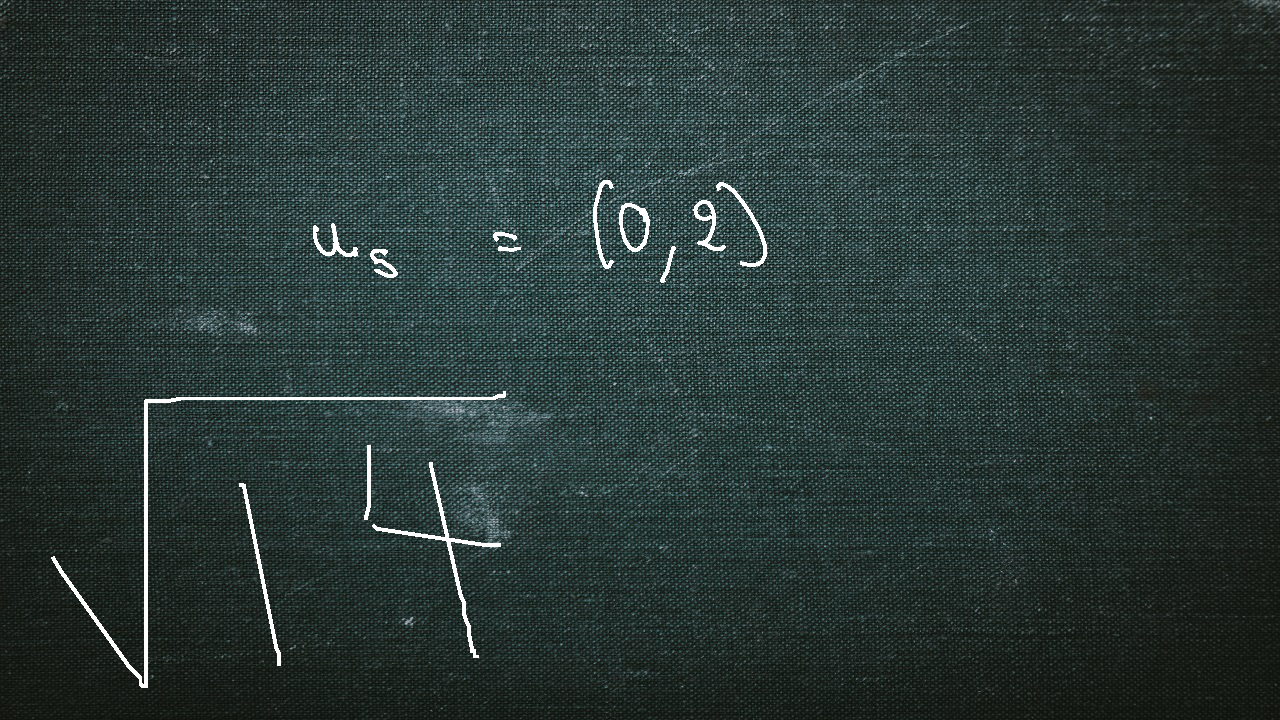 u₅ = (0,2)
√14